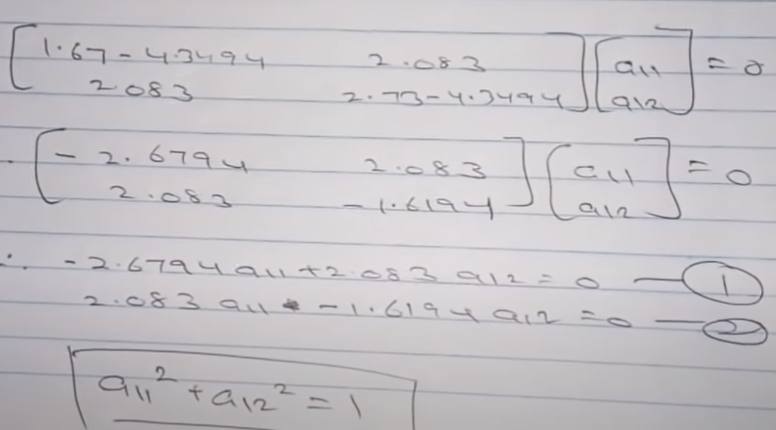 [1.67-4.3494 2.083] [a11] = 0
[2.083 2.73-4.3494] [a12]
. [-2.6794 2.083] [a11] = 0
[2.083 -1.6194] [a12]
∴ -2.6794 a11 + 2.083 a12 = 0 — 1
2.083 a11 - 1.6194 a12 = 0 — 2
a11² + a12² = 1